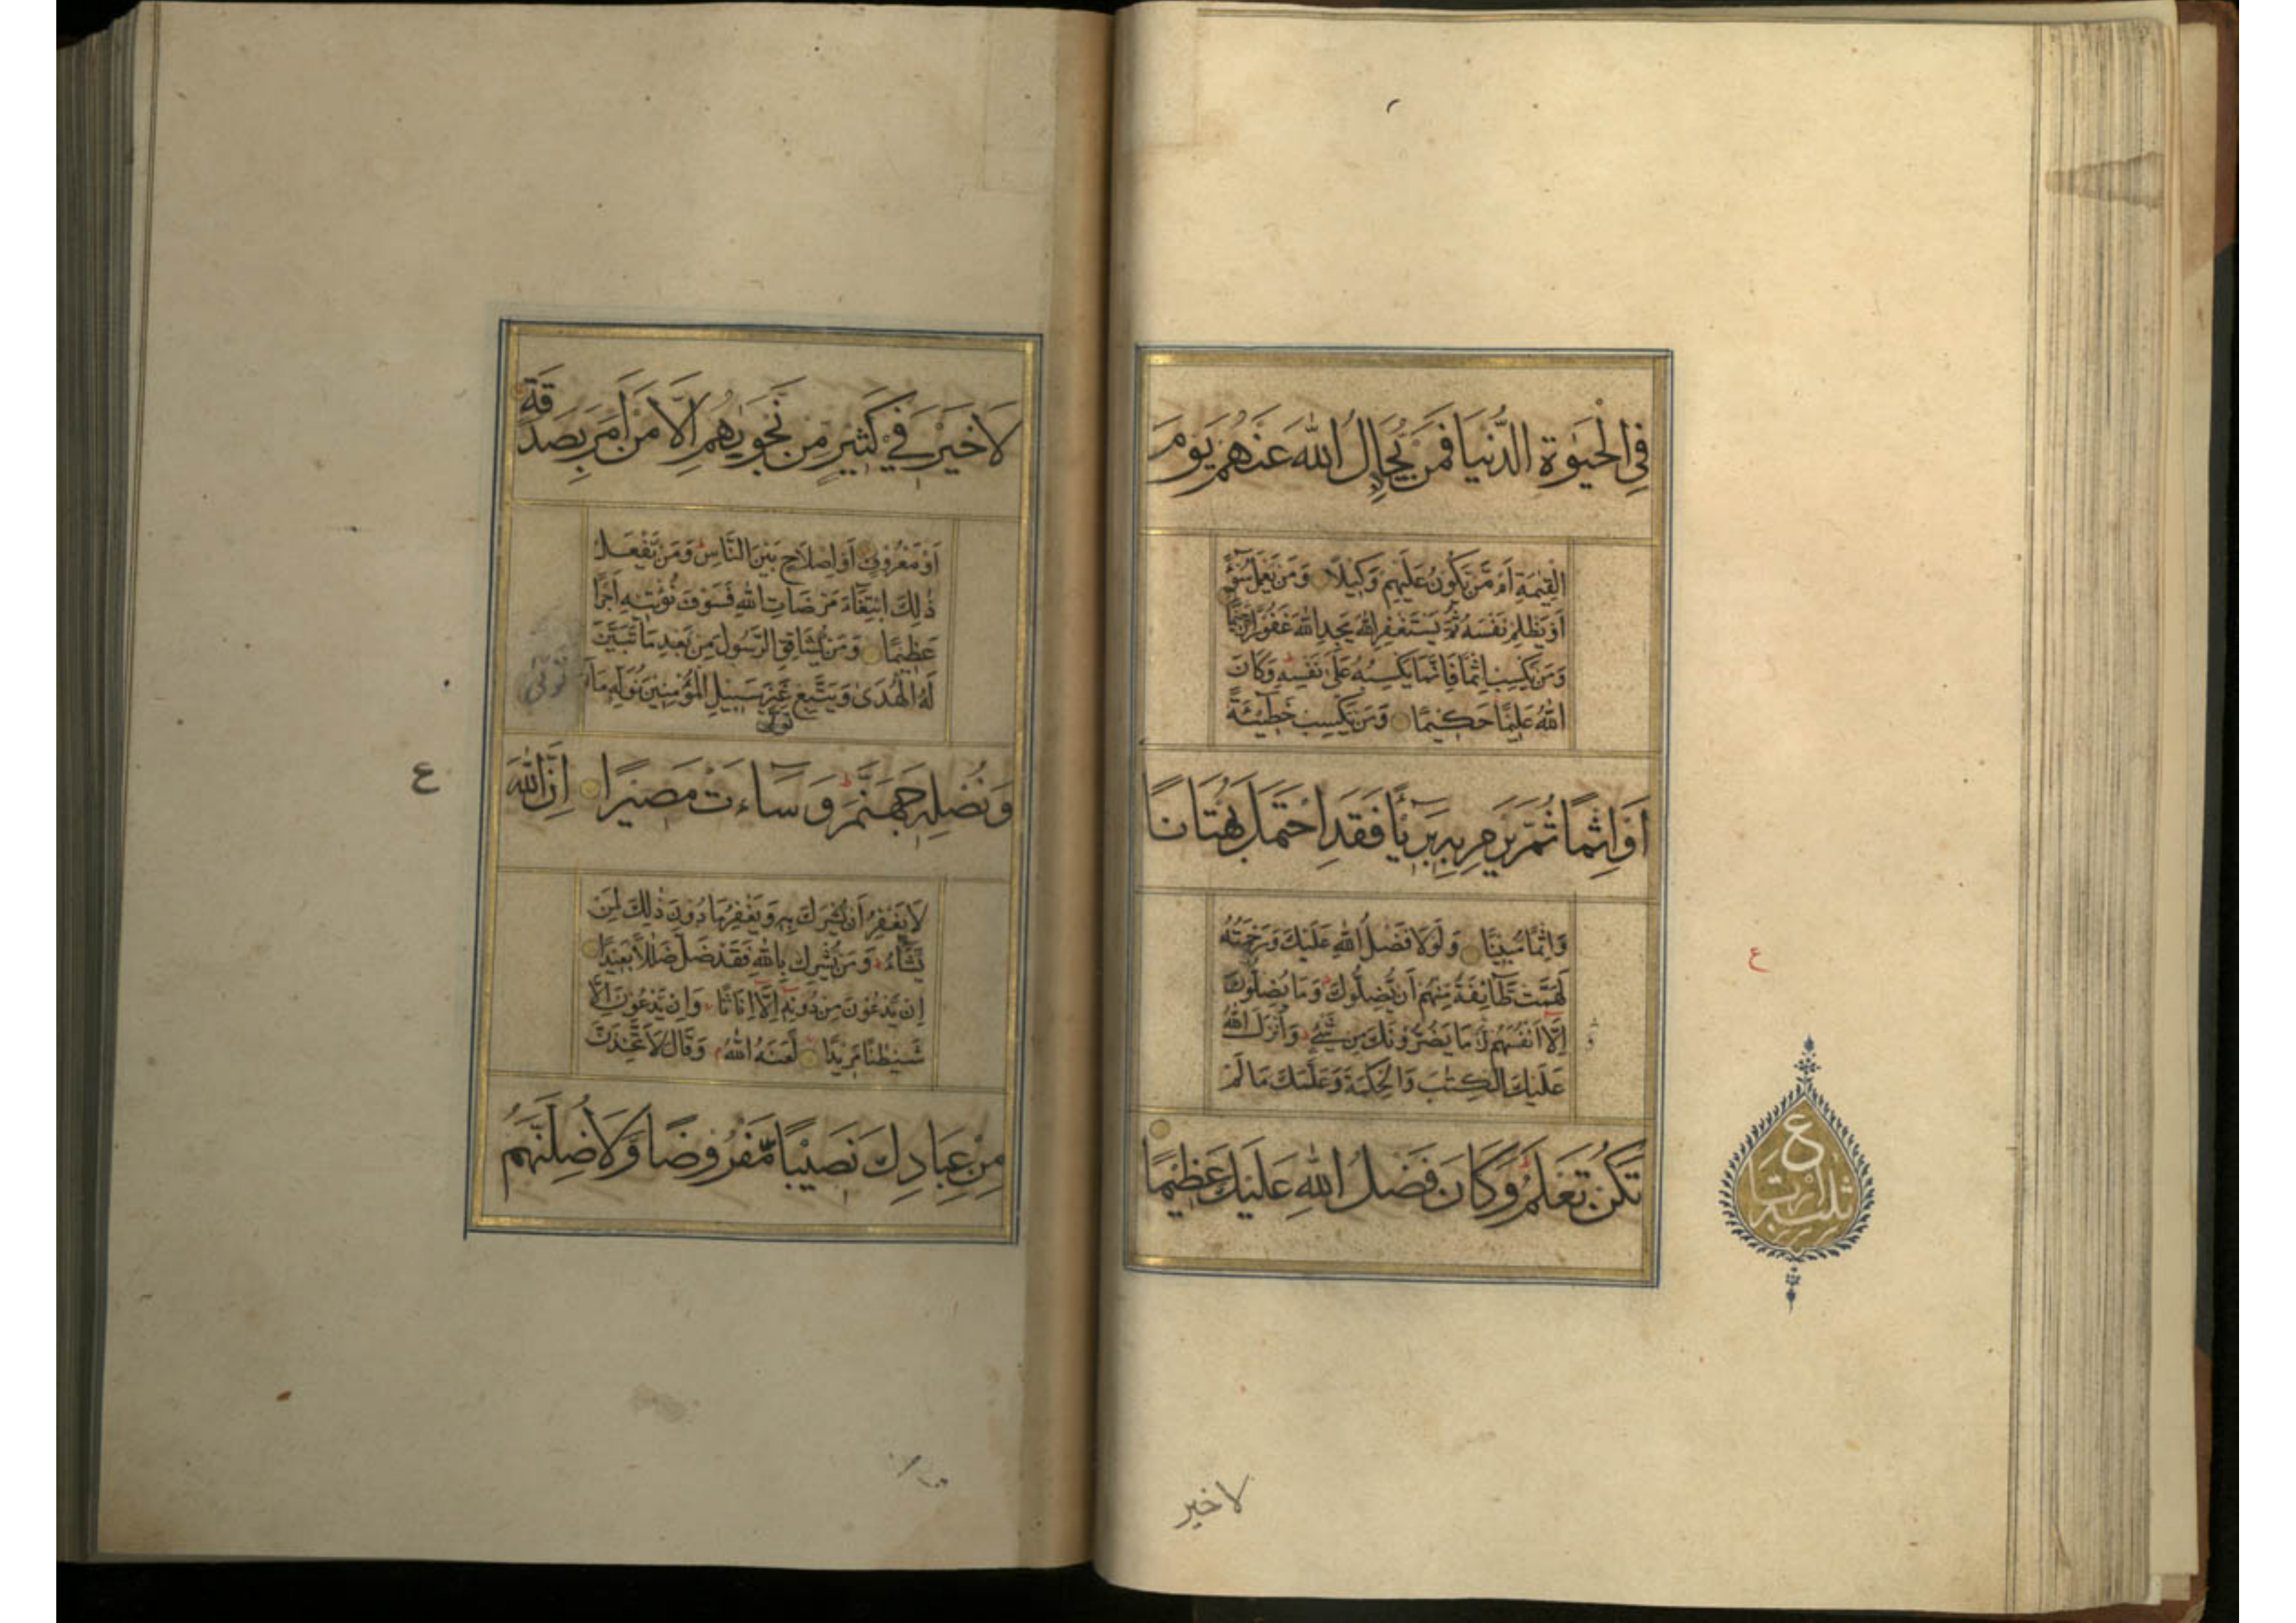 فِي الْحَيٰوةِ الدُّنْيَا فَمَنْ يُجَادِلُ اللّٰهَ عَنْهُمْ يَوْمَ
الْقِيٰمَةِ اَمْ مَّنْ يَكُوْنُ عَلَيْهِمْ وَكِيْلًا وَمَنْ يَعْمَلْ سُوْٓءًا
اَوْ يَظْلِمْ نَفْسَهُ ثُمَّ يَسْتَغْفِرِ اللّٰهَ يَجِدِ اللّٰهَ غَفُوْرًا رَّحِيْمًا
وَمَنْ يَّكْسِبْ اِثْمًا فَاِنَّمَا يَكْسِبُهُ عَلٰى نَفْسِهِ وَكَانَ
اللّٰهُ عَلِيْمًا حَكِيْمًا وَمَنْ يَّكْسِبْ خَطِيْٓئَةً
اَوْ اِثْمًا ثُمَّ يَرْمِ بِهِ بَرِيْٓئًا فَقَدِ احْتَمَلَ بُهْتَانًا
وَاِثْمًا مُّبِيْنًا وَلَوْلَا فَضْلُ اللّٰهِ عَلَيْكَ وَرَحْمَتُهُ
لَهَمَّتْ طَّآئِفَةٌ مِّنْهُمْ اَنْ يُّضِلُّوْكَ وَمَا يُضِلُّوْنَ
اِلَّا اَنْفُسَهُمْ وَمَا يَضُرُّوْنَكَ مِنْ شَيْءٍ وَاَنْزَلَ اللّٰهُ
عَلَيْكَ الْكِتٰبَ وَالْحِكْمَةَ وَعَلَّمَكَ مَا لَمْ
تَكُنْ تَعْلَمُ وَكَانَ فَضْلُ اللّٰهِ عَلَيْكَ عَظِيْمًا
ع
ع
لا خير
لَا خَيْرَ فِيْ كَثِيْرٍ مِّنْ نَّجْوٰىهُمْ اِلَّا مَنْ اَمَرَ بِصَدَقَةٍ
اَوْ مَعْرُوْفٍ اَوْ اِصْلَاحٍ بَيْنَ النَّاسِ وَمَنْ يَّفْعَلْ
ذٰلِكَ ابْتِغَآءَ مَرْضَاتِ اللّٰهِ فَسَوْفَ نُؤْتِيْهِ اَجْرًا
عَظِيْمًا وَمَنْ يُّشَاقِقِ الرَّسُوْلَ مِنْ بَعْدِ مَا تَبَيَّنَ
لَهُ الْهُدٰى وَيَتَّبِعْ غَيْرَ سَبِيْلِ الْمُؤْمِنِيْنَ نُوَلِّهِ مَا
تَوَلّٰى
وَنُصْلِهِ جَهَنَّمَ وَسَآءَتْ مَصِيْرًا اِنَّ اللّٰهَ
ع
لَا يَغْفِرُ اَنْ يُّشْرَكَ بِهِ وَيَغْفِرُ مَا دُوْنَ ذٰلِكَ لِمَنْ
يَّشَآءُ وَمَنْ يُّشْرِكْ بِاللّٰهِ فَقَدْ ضَلَّ ضَلٰلًا بَعِيْدًا
اِنْ يَّدْعُوْنَ مِنْ دُوْنِهِ اِلَّا اِنَاثًا وَاِنْ يَّدْعُوْنَ اِلَّا
شَيْطٰنًا مَّرِيْدًا لَّعَنَهُ اللّٰهُ وَقَالَ لَاَتَّخِذَنَّ
مِنْ عِبَادِكَ نَصِيْبًا مَّفْرُوْضًا وَّلَاُضِلَّنَّهُمْ